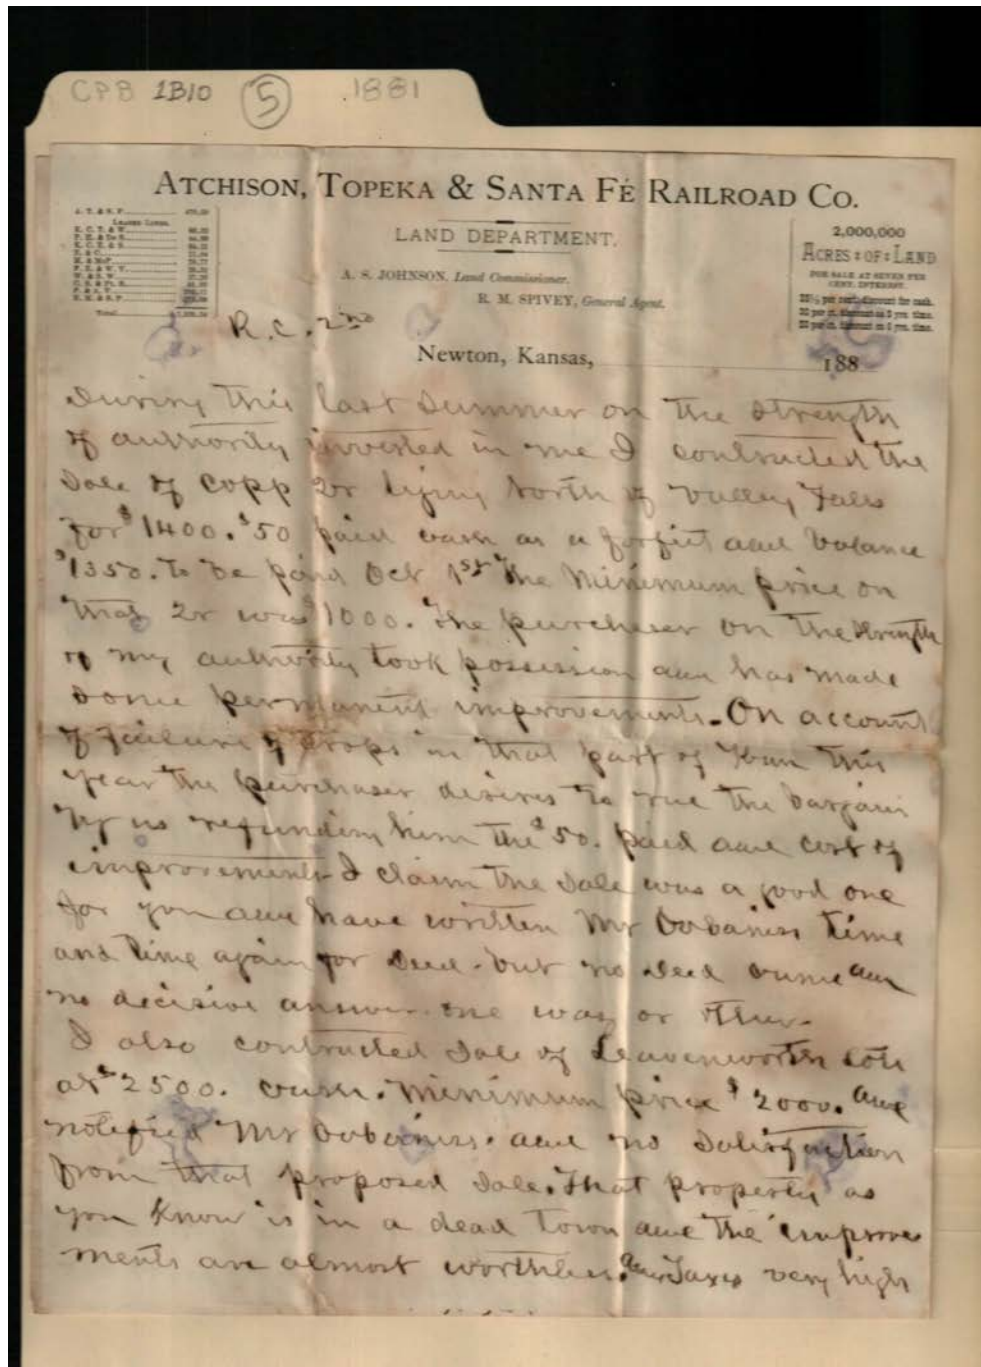 CPB 1B10 5 1881
ATCHISON, TOPEKA & SANTA FÉ RAILROAD CO.
LAND DEPARTMENT.
A. S. JOHNSON, Land Commissioner.
R. M. SPIVEY, General Agent.
2,000,000
ACRES : OF : LAND
FOR SALE AT SEVEN PER
CENT. INTEREST.
R.C. 2nd
Newton, Kansas, 188
During this last summer on the strength
of authority invested in me I contracted the
Sale of Copp 2r lying North of Valley Falls
for $1400. $50 paid cash as a forfiet and balance
$1350. to be paid Oct 1st The Minimum price on
that 2r was $1000. The purchaser on the strength
of my authority took possession and has made
some permanent improvements. On account
of failure of crops in that part of Kan this
year the purchaser desires to rue the bargain
by us refunding him the $50. paid and cost of
improvements I claim the sale was a good one
for you and have written Mr time
and time again for Deed. but no Deed came and
no decisive answer one way or other.
I also contracted sale of Leavenworth lots
at $2500. cash. Minimum price $2000. and
notified Mr and no satisfaction
from that proposed sale. That property as
you know is in a dead town and the improve
ments are almost worthless. and Taxes very high